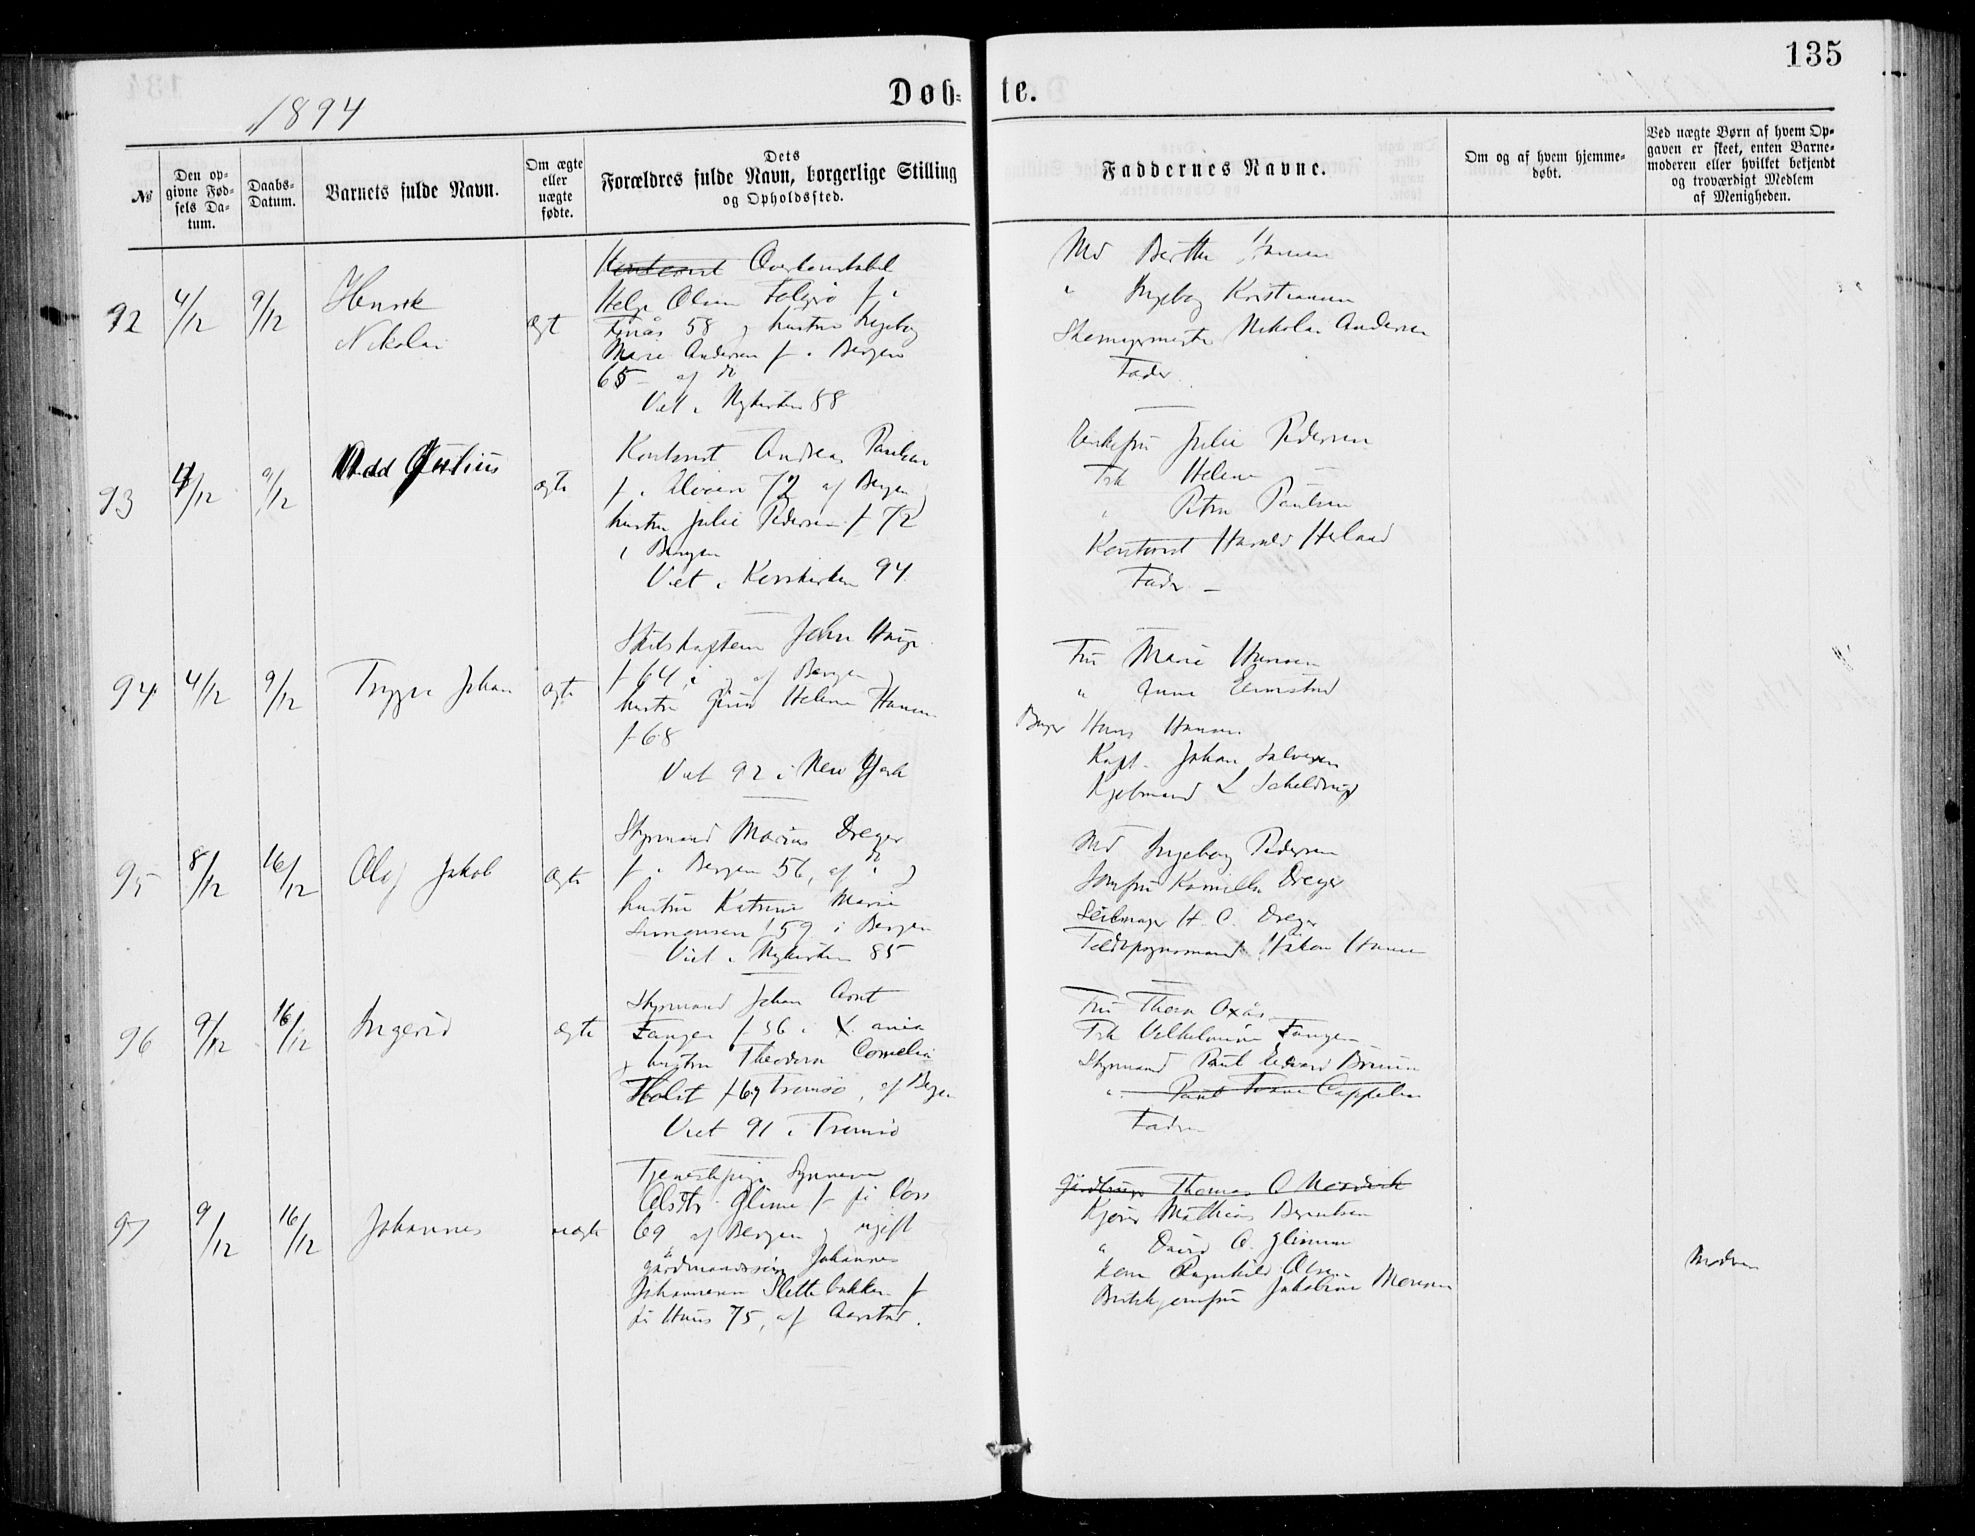 135
1894
Døb-
te.
№
Den op-
givne Fød-
sels Da-
tum.
Daabs-
Datum.
Barnets fulde Navn.
Om ægte
eller
uægte
fødte.
Dets
Forældres fulde Navn, borgerlige Stilling
og Opholdssted.
Faddernes Navne.
Om og af hvem hjemme-
døbt.
Ved uægte Børn af hvem Op-
gaven er skeet, enten Barne-
moderen eller hvilket bekjendt
og troværdigt Medlem
af Menigheden.
92
4/12
9/12
Henrik
Nikolai
ægt
Overkonstabel
Helje Olsen f i
58 hustru Ingeborg
Marie Andersen f. i Bergen
65 af do
Viet i Nykirken 88
Md Berthe Hansen
" Ingeborg Kristiansen
Skomagermester Nikolai Andersen
Fader
93
4/12
9/12
Odd Julius
ægte
Kontorist Andreas Paulsen
f. i 72 af Bergen
hustru Julie Pedersen f 72
i Bergen
Viet i Korskirken 94
Enkefru Julie Pedersen
Frk Helene
" Petra Paulsen
Kontorist Harald
Fader
94
4/12
9/12
Trygve Johan
ægte
Skibskaptein John
f 64, i og af Bergen
hustru Helene Hansen
f 68
Viet 92 i New York
Fru Marie Hansen
" Anna
Bager Hans Hansen
Kapt. Johan Salvesen
Kjøbmand L
95
8/12
16/12
Olaf Jakob
ægte
Styrmand Marius Dreyer
f. i Bergen 56, af do
hustru Katrine Marie
Simonsen f 59 i Bergen
Viet i Nykirken 85
Md Ingeborg Pedersen
Jomfru Kamilla Dreyer
Seilmager H. C. Dreyer
Håkon Hansen
96
9/12
16/12
Ingerid
ægte
Styrmand Johan Arnt
Zangen f 56 i X.ania
hustru Theodora Cornelia
Holst f 69 Tromsø, af Bergen
Viet 91 i Tromsø
Fru Thora
Frk Vilhelmine Zangen
Styrmand Paul Edvard Bruun
" Paul Cappelen
Faderen
97
9/12
16/12
Johannes
uægte
Tjenestepige Synneva
Olsdtr. Glime f på Voss
69 af Bergen og ugift
gårdmandssøn Johannes
Johannesen Slettebakken f
på 75, af Aarstad.
Thomas O
Kjører Mathias Berentsen
" David O. Glimme
Kone Ragnhild Olsen
Jakobine Monsen
Moderen